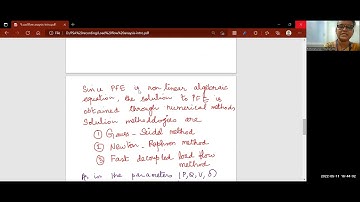 9 Load flow analysis intro.pdf
Since PFE is non linear algebraic
equation, the solution to PFE is
obtained through numerical methods.
Solution methodologies are
① Gauss - Seidel method
② Newton - Raphson method
③ Fast decoupled load flow
method
As in the parameters (P, Q, V, δ)
2022-05-11 18:44:02